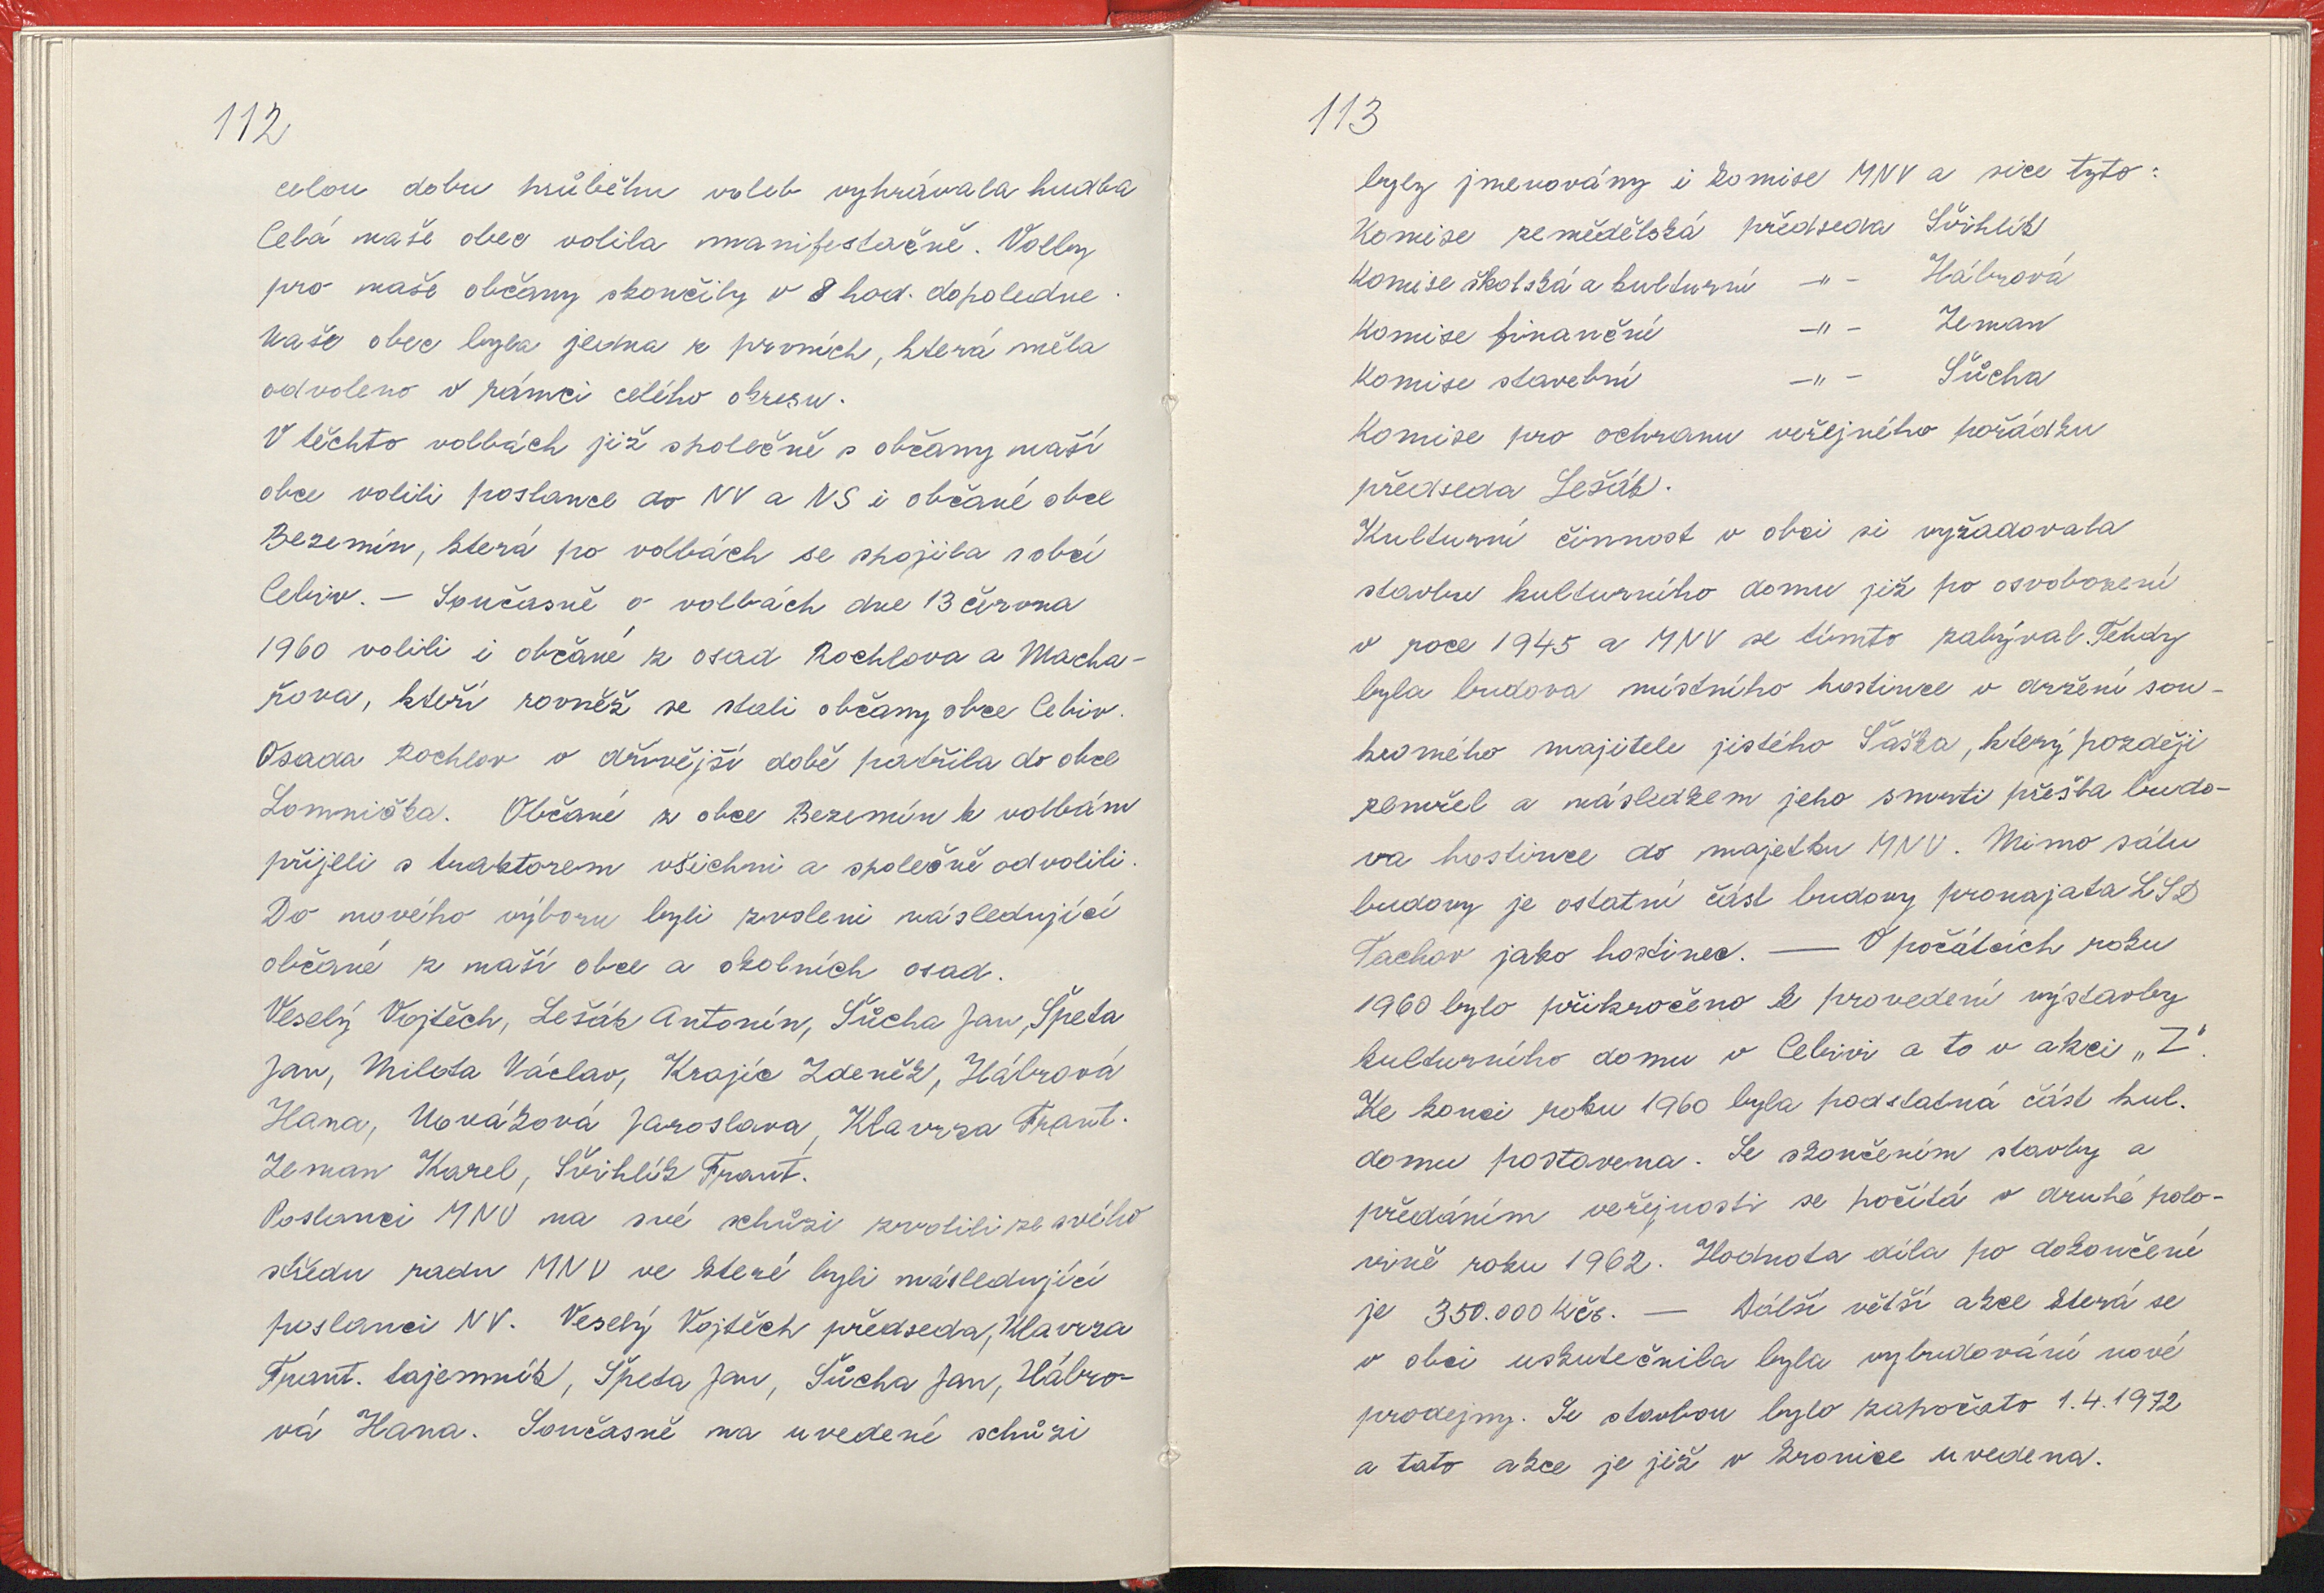 112
celou dobu průběhu voleb vyhrávala hudba
Celá naše obec volila manifestačně. Volby
pro naše občany skončily v 8 hod. dopoledne.
Naše obec byla jedna z prvních, která měla
odvoleno v rámci celého okresu.
V těchto volbách již společně s občany naší
obce volili poslance do NV a NS i občané obce
Bezemín, která po volbách se spojila s obcí
Cebiv. — Současně o volbách dne 13 června
1960 volili i občané z osad Rochlova a Macha-
řova, kteří rovněž se stali občany obce Cebiv.
Osada Rochlov v dřívější době patřila do obce
Lomnička. Občané z obce Bezemín k volbám
přijeli s traktorem všichni a společně odvolili.
Do nového výboru byli zvoleni následující
občané z naší obce a okolních osad.
Veselý Vojtěch, Lešák Antonín, Šůcha Jan, Špeta
Jan, Milota Václav, Krajíc Zdeněk, Hábrová
Hana, Nováková Jaroslava, Klavrza Frant.
Zeman Karel, Švihlík Frant.
Poslanci MNV na své schůzi zvolili ze svého
středu radu MNV ve které byli následující
poslanci NV. Veselý Vojtěch předseda, Klavrza
Frant. tajemník, Špeta Jan, Šůcha Jan, Hábro-
vá Hana. Současně na uvedené schůzi
113
byly jmenovány i komise MNV a sice tyto:
Komise zemědělská předseda Švihlík
Komise školská a kulturní -"- Hábrová
Komise finanční -"- Zeman
Komise stavební -"- Šůcha
Komise pro ochranu veřejného pořádku
předseda Lešák.
Kulturní činnost v obci si vyžadovala
stavbu kulturního domu již po osvobození
v roce 1945 a MNV se tímto zabýval. Tehdy
byla budova místního hostince v držení sou-
kromého majitele jistého Šaška, který později
zemřel a následkem jeho smrti přešla budo-
va hostince do majetku MNV. Mimo sálu
budovy je ostatní část budovy pronajata LSD
Tachov jako hostinec. — V počátcích roku
1960 bylo přikročeno k provedení výstavby
kulturního domu v Cebivi a to v akci „Z".
Ke konci roku 1960 byla podstatná část kul.
domu postavena. Se skončením stavby a
předáním veřejnosti se počítá v druhé polo-
vině roku 1962. Hodnota díla po dokončení
je 350.000 Kčs. — Další větší akce která se
v obci uskutečnila byla vybudování nové
prodejny. Se stavbou bylo započato 1.4.1972
a tato akce je již v kronice uvedena.